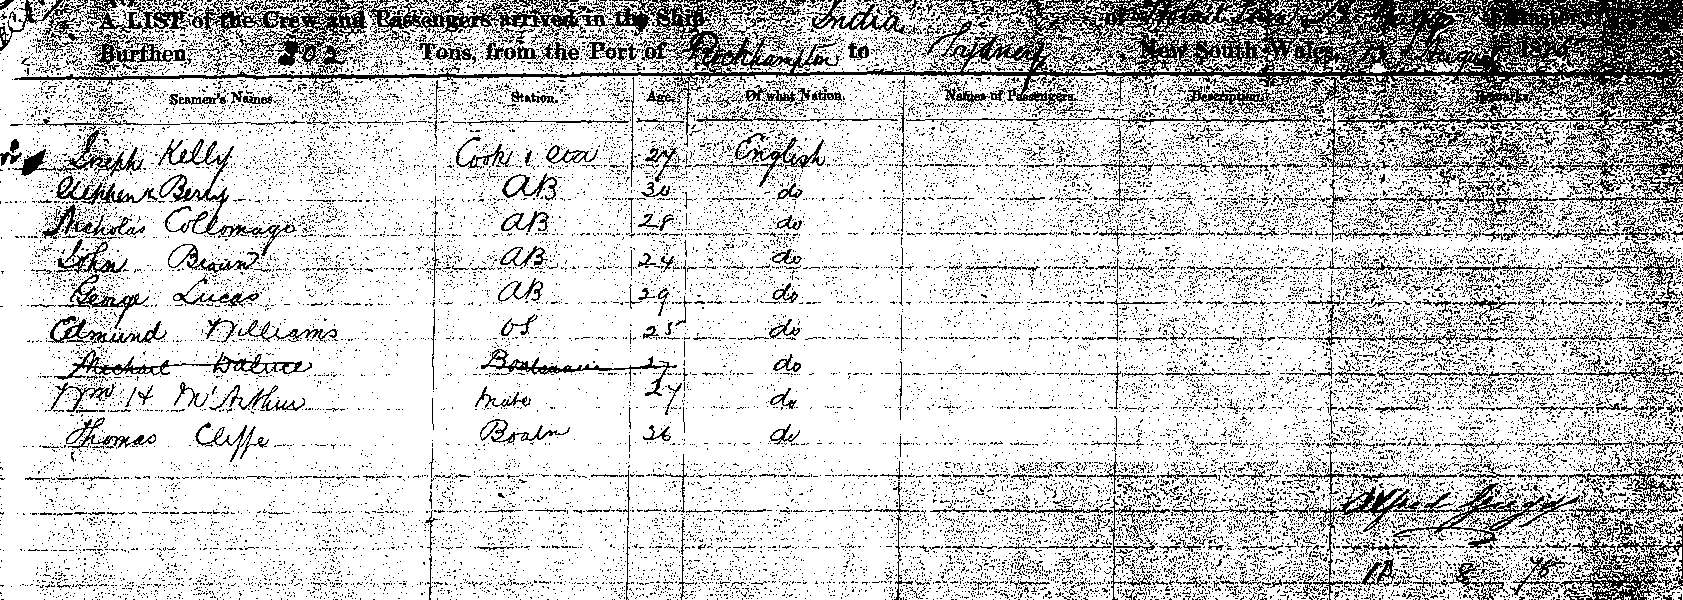 A LIST of the Crew and Passengers arrived in the Ship India of
Burthen 302 Tons, from the Port of Rockhampton to Sydney New South Wales, 187
Seamen's Names. Station. Age. Of what Nation. Names of Passengers. Description. Remarks.
Joseph Kelly Cook & 27 English
Stephen Berry AB 30 do
Nicholas AB 28 do
John Brown AB 24 do
George Lucas AB 29 do
Edmund Williams OS 25 do
Michael 27 do
Wm H McArthur Mate 27 do
Thomas Cliffe Boatn 36 do
Alfred
8 75